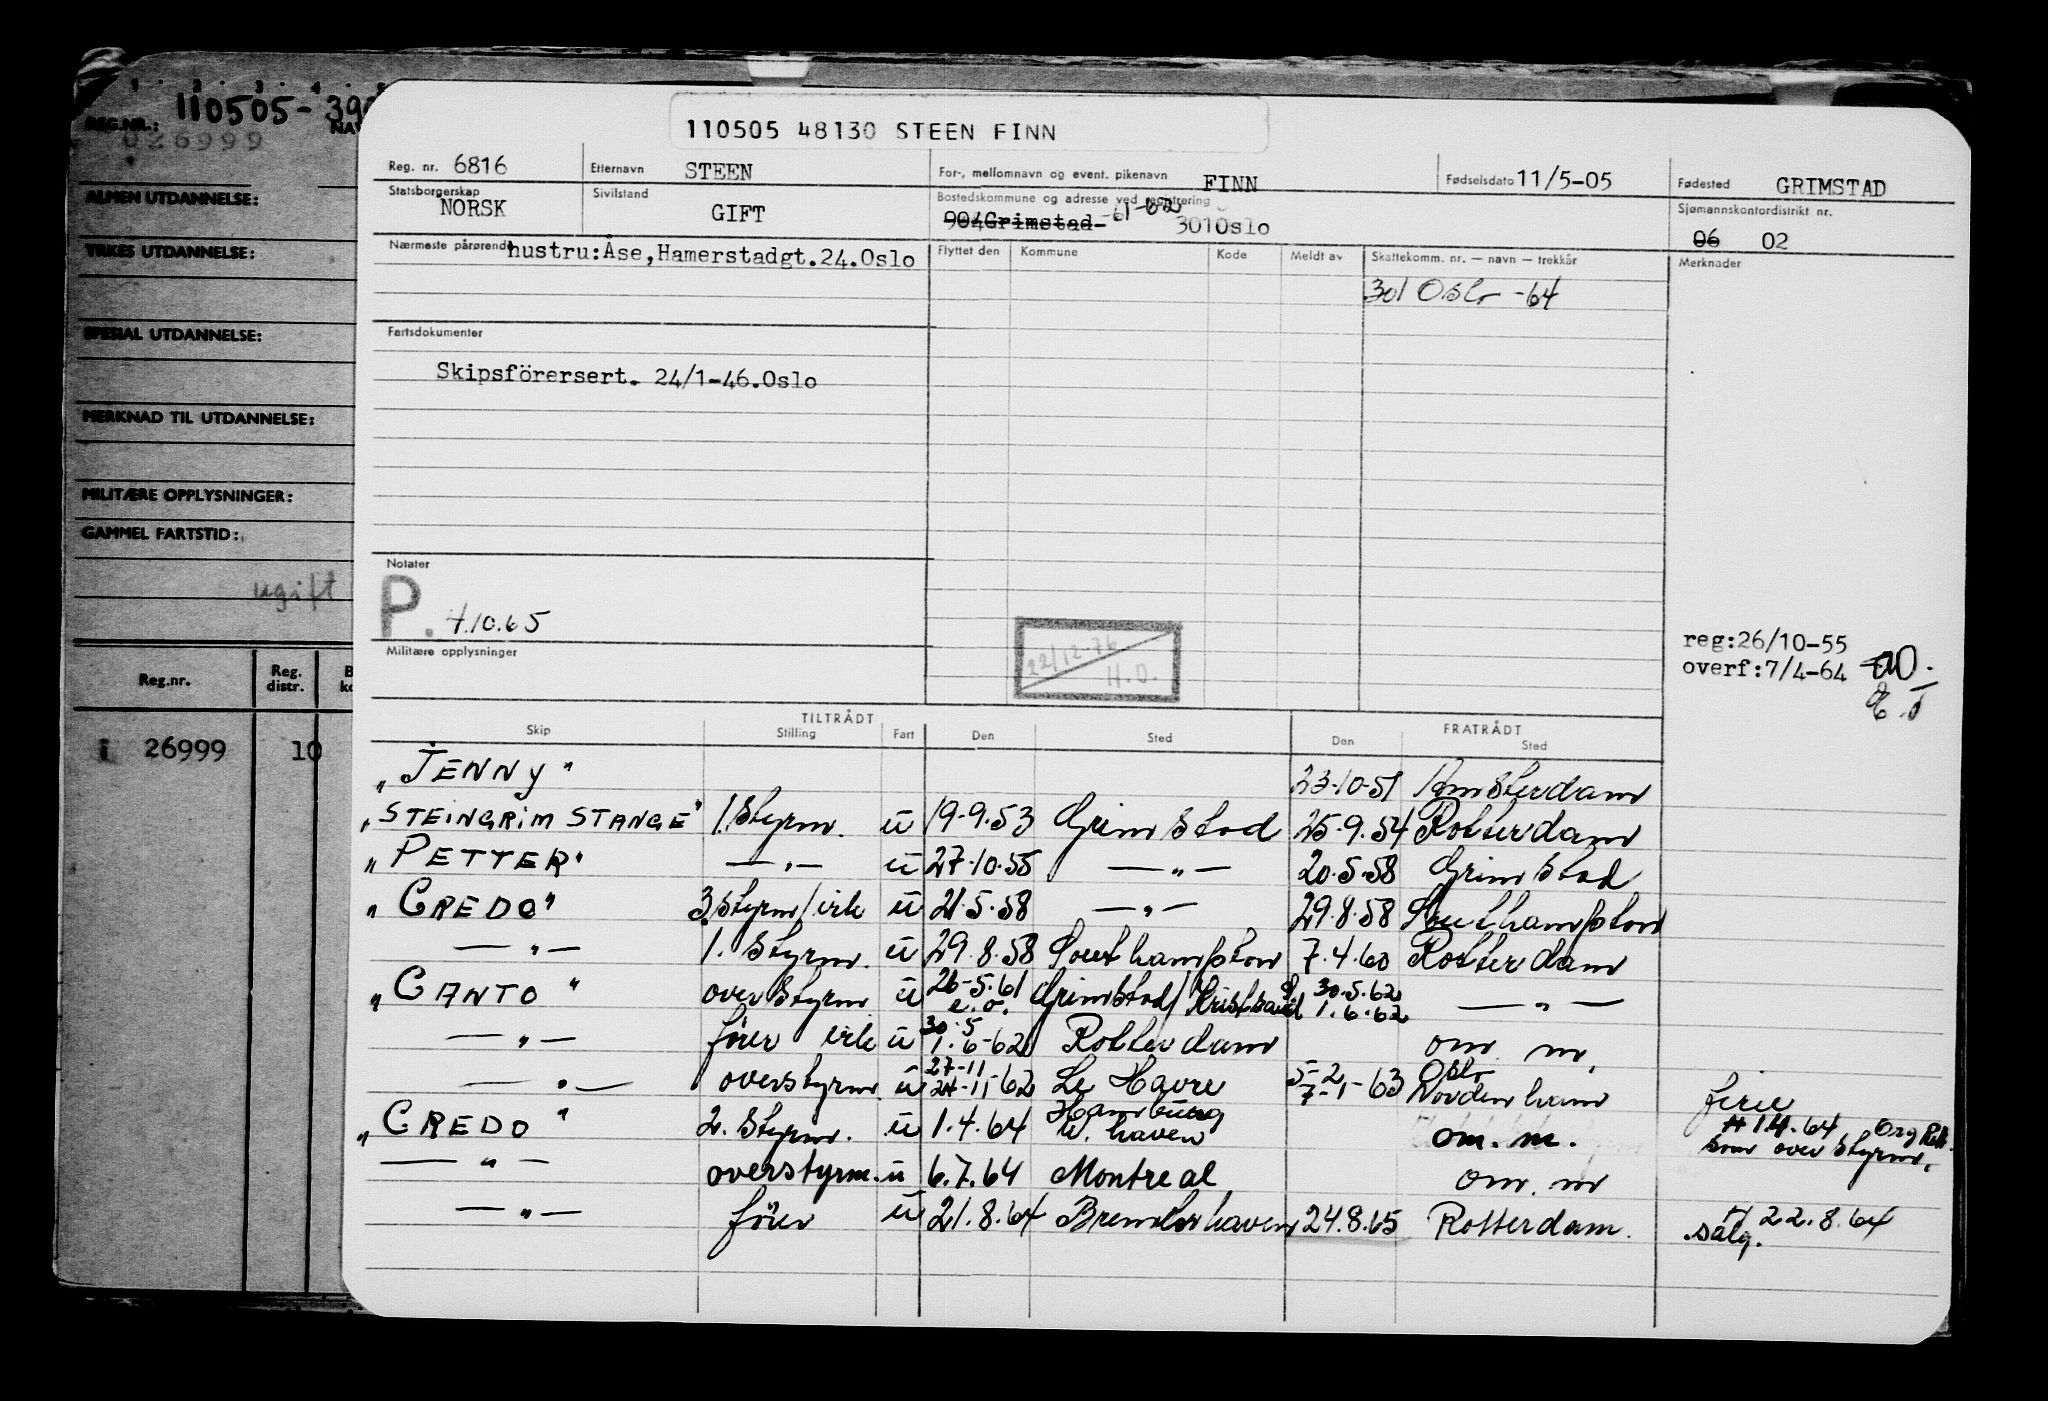 1 · 2 · 3 · 4 · 5
REG.NR.: 110505-39
026999
ALMEN UTDANNELSE:
YRKES UTDANNELSE:
SPESIAL UTDANNELSE:
MERKNAD TIL UTDANNELSE:
MILITÆRE OPPLYSNINGER:
GAMMEL FARTSTID:
ugift
Reg.nr. Reg. distr.
26999 10
110505 48130 STEEN FINN
Reg. nr. 6816 Etternavn STEEN For-, mellomnavn og event. pikenavn FINN Fødselsdato 11/5-05 Fødested GRIMSTAD
Statsborgerskap NORSK Sivilstand GIFT Bostedskommune og adresse ved registrering 904Grimstad -61-62 301Oslo Sjømannskontordistrikt nr. 06 02
Nærmeste pårørende hustru:Åse,Hamerstadgt.24.Oslo Flyttet den Kommune Kode Meldt av Skattekomm. nr. — navn — trekkår Merknader
301 Oslo -64
Fartsdokumenter
Skipsförersert. 24/1-46.Oslo
Notater
P. 4.10.65
22/12-76
H.O.
Militære opplysninger
reg:26/10-55
overf:7/4-64
TILTRÅDT FRATRÅDT
Skip Stilling Fart Den Sted Den Sted
"JENNY" 23-10-51 Amsterdam
"STEINGRIM STANGE" 1.Styrm. u 19-9.53 Grimstad 25.9.54 Rotterdam
"PETTER" —"— u 27-10-55 —"— 20.5.58 Grimstad
"CREDO" 3.styrm/irk u 21.5.58 —"— 29.8.58 Southampton
—"— 1. Styrm. u 29.8.58 Southampton 7.4.60 Rotterdam
"CANTO" overstyrm u 26-5.61 e.o. Grimstad/Kristsand 30.5.62 1.6.62 —"—
—"— fører irk u 30.5 1.6-62 Rotterdam om. m.
—"— overstyrm. u 27-11 24-11-62 Le Havre 5-2 7-1-63 Oslo Nordenham ferie
"CREDO" 2. Styrm. u 1.4.64 Hamburg W. haven om. m. 1.4.64 Org Rett. som overstyrm.
—"— overstyrm. u 6.7.64 Montreal om. m
—"— fører u 21.8.64 Bremerhaven 24.8.65 Rotterdam. 22.8.64
salg.